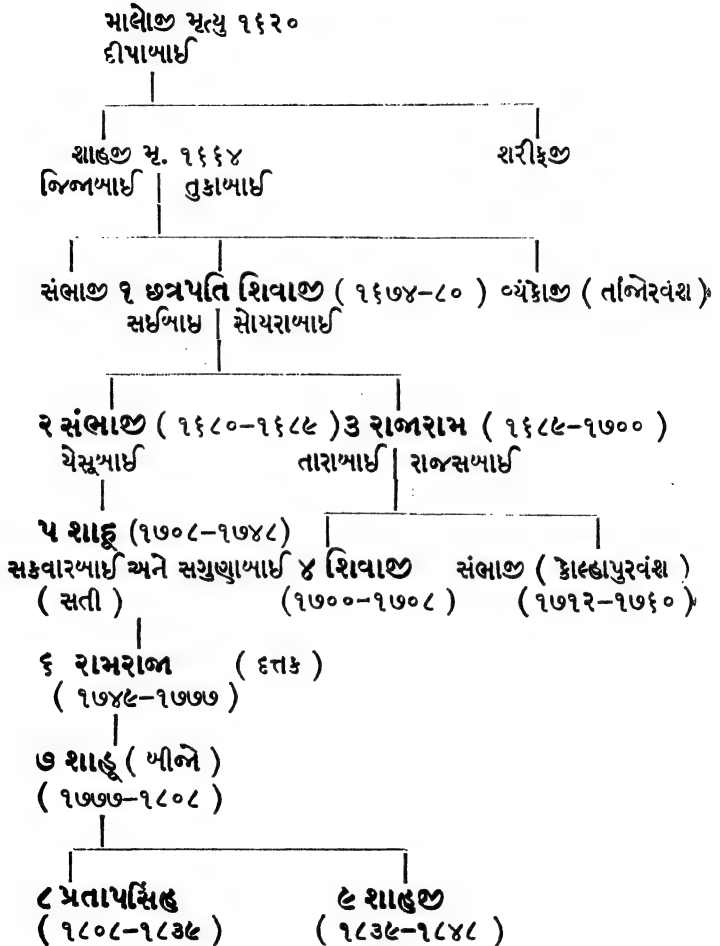 માલોજી મૃત્યુ ૧૬૨૦
દીપાબાઈ
શાહજી મૃ. ૧૬૬૪ શરીફજી
જિજાબાઈ તુકાબાઈ
સંભાજી ૧ છત્રપતિ શિવાજી ( ૧૬૭૪-૮૦ ) વ્યંકોજી ( તાંજોરવંશ )
સઈબાઇ સોયરાબાઈ
૨ સંભાજી ( ૧૬૮૦-૧૬૮૯ ) ૩ રાજારામ ( ૧૬૮૯-૧૭૦૦ )
યેસૂબાઈ તારાબાઈ રાજસબાઈ
૫ શાહૂ (૧૭૦૮-૧૭૪૮)
સકવારબાઈ અને સગુણાબાઈ ૪ શિવાજી સંભાજી ( કોલ્હાપુરવંશ )
( સતી ) (૧૭૦૦-૧૭૦૮ ) ( ૧૭૧૨-૧૭૬૦ )
૬ રામરાજા ( દત્તક )
( ૧૭૪૯-૧૭૭૭ )
૭ શાહૂ ( બીજો )
( ૧૭૭૭-૧૮૦૮ )
૮ પ્રતાપસિંહ ૯ શાહજી
( ૧૮૦૮-૧૮૩૯ ) ( ૧૮૩૯-૧૮૪૮ )